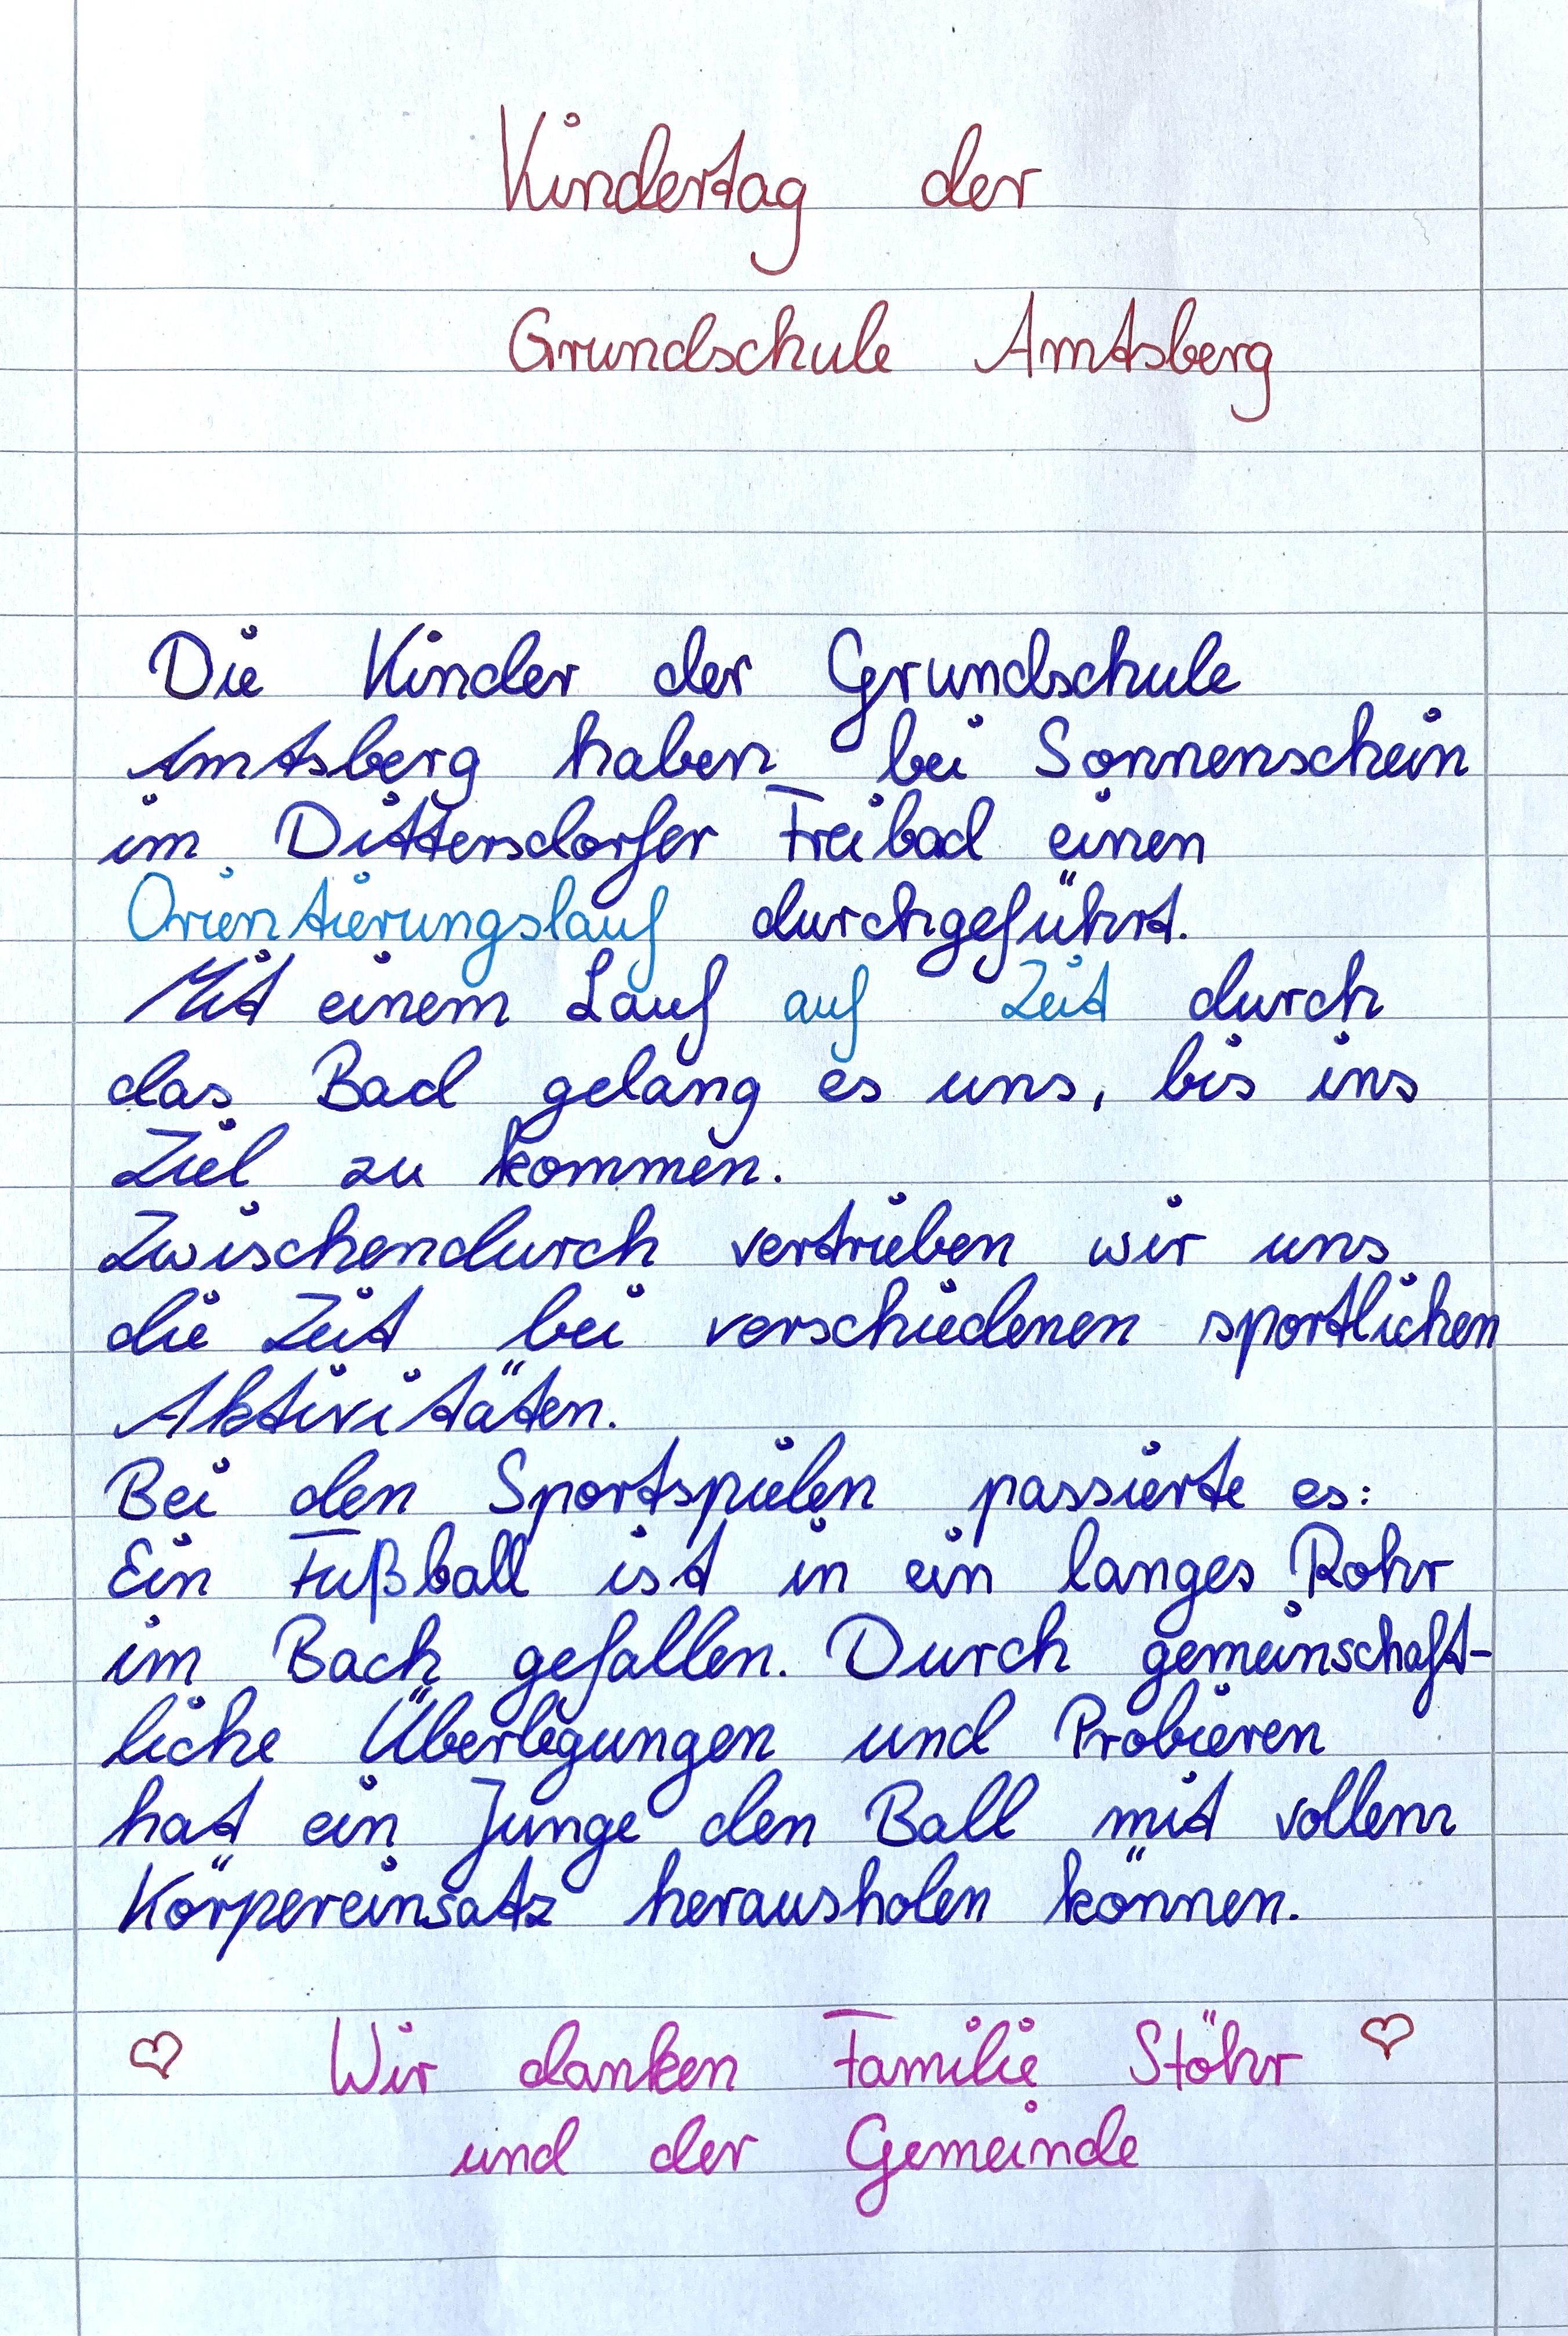 Kindertag der
Grundschule Amtsberg
Die Kinder der Grundschule
Amtsberg haben bei Sonnenschein
im Dittersdorfer Freibad einen
Orientierungslauf durchgeführt.
Mit einem Lauf auf Zeit durch
das Bad gelang es uns, bis ins
Ziel zu kommen.
Zwischendurch vertrieben wir uns
die Zeit bei verschiedenen sportlichen
Aktivitäten.
Bei den Sportspielen passierte es:
Ein Fußball ist in ein langes Rohr
im Bach gefallen. Durch gemeinschaft-
liche Überlegungen und Probieren
hat ein Junge den Ball mit vollem
Körpereinsatz herausholen können.
♡ Wir danken Familie Stöhr ♡
und der Gemeinde